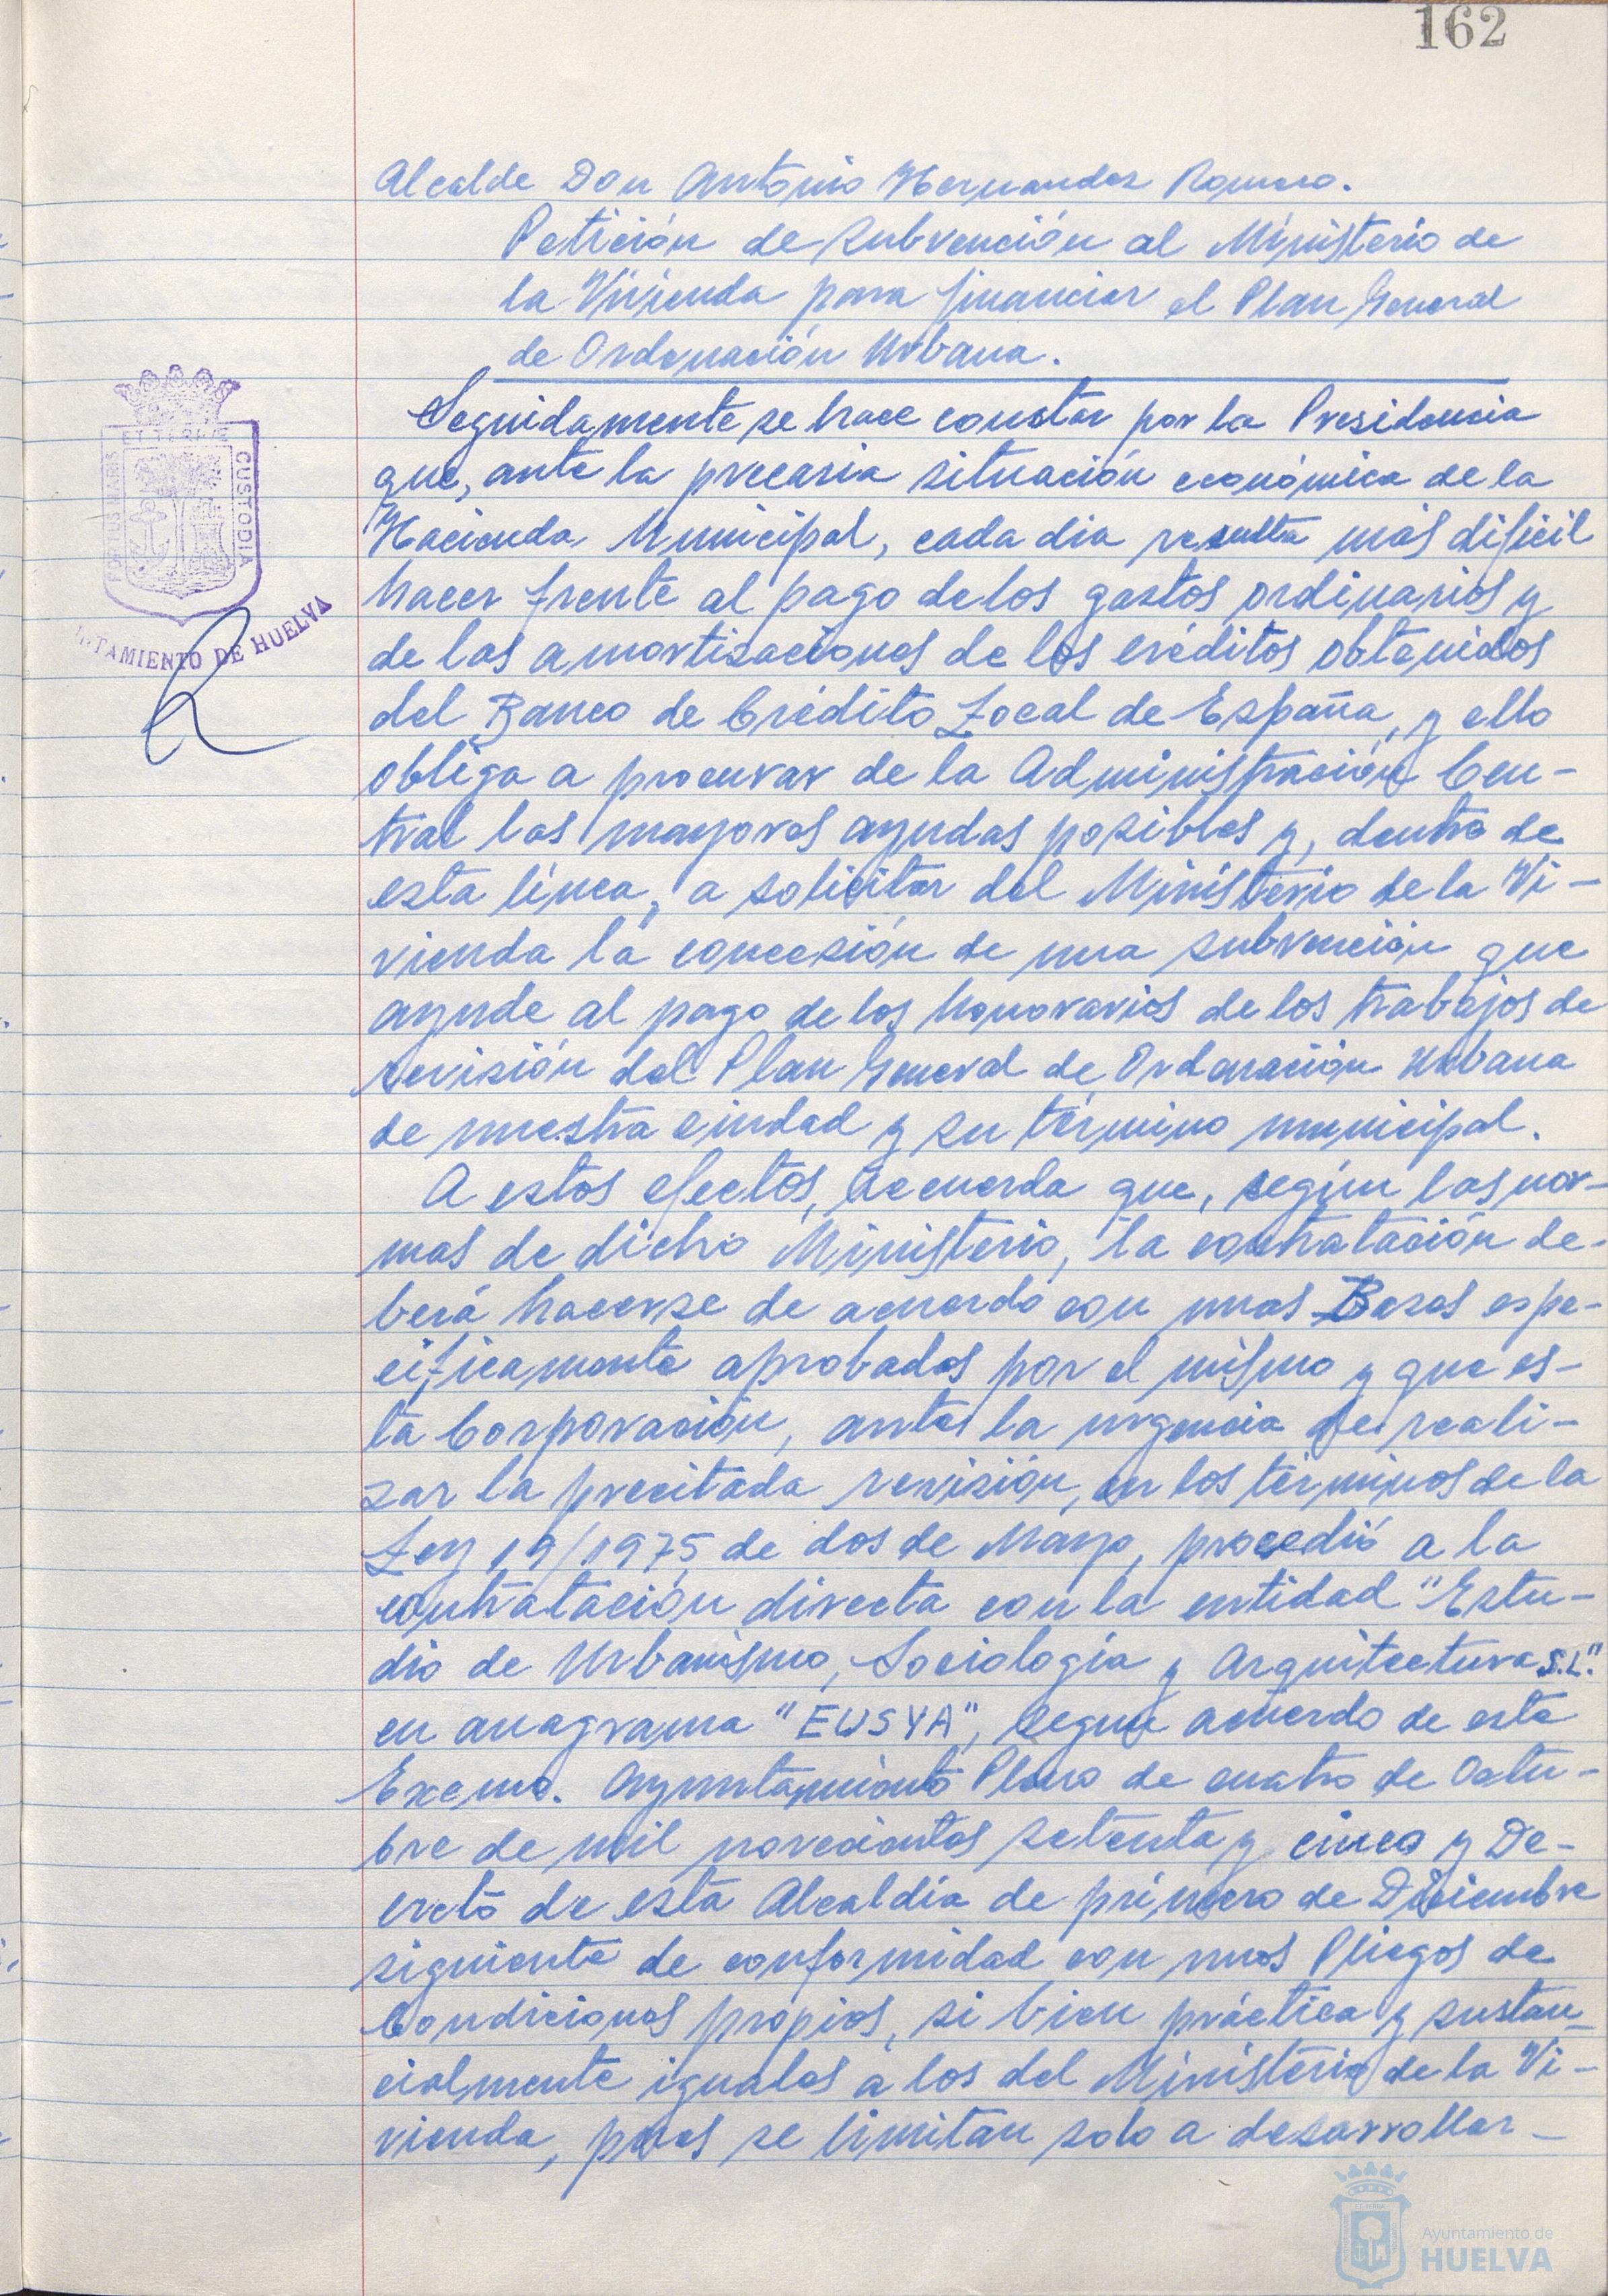 162
Alcalde Don Antonio Hernandez Romero.
Petición de subvención al Ministerio de
la Vivienda para financiar el Plan General
de Ordenación Urbana.
Seguidamente se hace constar por la Presidencia
que, ante la precaria situación económica de la
Hacienda Municipal, cada dia resulta más dificil
hacer frente al pago de los gastos ordinarios y
de las amortizaciones de los créditos obtenidos
del Banco de Crédito Local de España, y ello
obliga a procurar de la Administración Cen-
tral las mayores ayudas posibles y, dentro de
esta línea, a solicitar del Ministerio de la Vi-
vienda la concesión de una subvención que
ayude al pago de los honorarios de los trabajos de
revisión del Plan General de Ordenación Urbana
de nuestra ciudad y su término municipal.
A estos efectos, acuerda que, según las nor-
mas de dicho Ministerio, la contratación de-
berá hacerse de acuerdo con unas Bases espe-
cíficamente aprobadas por el mismo y que es-
ta Corporación, ante la urgencia de reali-
zar la precitada revisión, en los términos de la
Ley 19/1975 de dos de Mayo, procedió a la
contratación directa con la entidad "Estu-
dio de Urbanismo, Sociología y Arquitectura S.L."
en anagrama "EUSYA", según acuerdo de este
Excmo. Ayuntamiento Pleno de cuatro de Octu-
bre de mil novecientos setenta y cinco y De-
creto de esta Alcaldía de primero de Diciembre
siguiente de conformidad con unos Pliegos de
Condiciones propios, si bien práctica y sustan-
cialmente iguales a los del Ministerio de la Vi-
vienda, pues se limitan solo a desarrollar-
PORTUS MARIS
ET TERRE
CUSTODIA
NTAMIENTO DE HUELVA
Ayuntamiento de
HUELVA